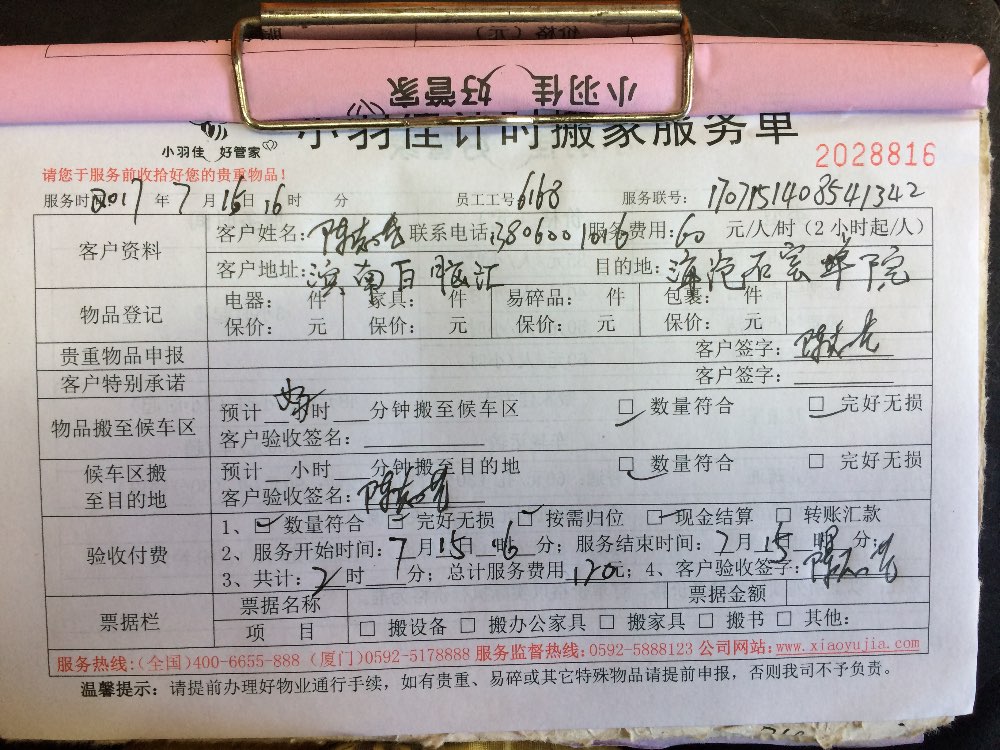 小羽佳 好管家
小羽佳计时搬家服务单
小羽佳 好管家
2028816
请您于服务前收拾好您的贵重物品!
服务时间 2017 年 7 月 15 日 16 时 分 员工工号 6168 服务联号: 1707151408541342
客户资料 客户姓名: 陈志亮 联系电话: 服务费用: 60 元/人/时 (2小时起/人)
客户地址: 滨南 目的地: 海沧
物品登记 电器: 件 家具: 件 易碎品: 件 包裹: 件
保价: 元 保价: 元 保价: 元 保价: 元
贵重物品申报 客户签字: 陈志亮
客户特别承诺 客户签字:
物品搬至候车区 预计 小时 分钟搬至候车区 □ 数量符合 □ 完好无损
客户验收签名:
候车区搬至目的地 预计 小时 分钟搬至目的地 □ 数量符合 □ 完好无损
客户验收签名: 陈志亮
验收付费 1、□ 数量符合 □ 完好无损 □ 按需归位 □ 现金结算 □ 转账汇款
2、服务开始时间: 7 月 15 日 16 时 分; 服务结束时间: 7 月 15 日 时 分;
3、共计: 2 时 分; 总计服务费用 120 元; 4、客户验收签字: 陈志亮
票据栏 票据名称 票据金额
项 目 □ 搬设备 □ 搬办公家具 □ 搬家具 □ 搬书 □ 其他:
服务热线:(全国)400-6655-888 (厦门)0592-5178888 服务监督热线:0592-5888123 公司网站:www.xiaoyujia.com
温馨提示: 请提前办理好物业通行手续, 如有贵重、易碎或其它特殊物品请提前申报, 否则我司不予负责。